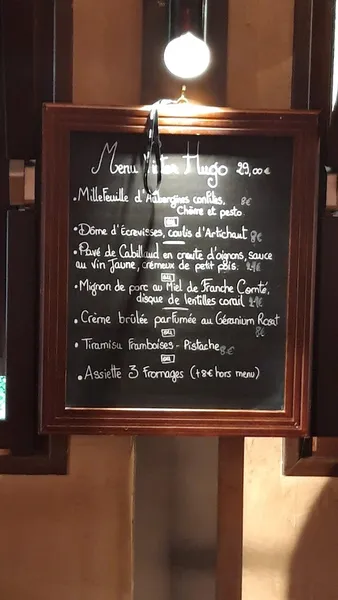 Menu Victor Hugo 29,00 €
• Millefeuille d'Aubergines confites, 8€
Chèvre et pesto
OU
• Dôme d'Ecrevisses, coulis d'Artichaut 8€
• Pavé de Cabillaud en croute d'oignons, sauce
au Vin Jaune, crémeux de petit pois.
OU
• Mignon de porc au Miel de Franche Comté,
disque de lentilles corail
• Crème brûlée parfumée au Géranium Rosat
8€
OU
• Tiramisu Framboises - Pistache 8€
OU
• Assiette 3 Fromages (+8€ hors menu)